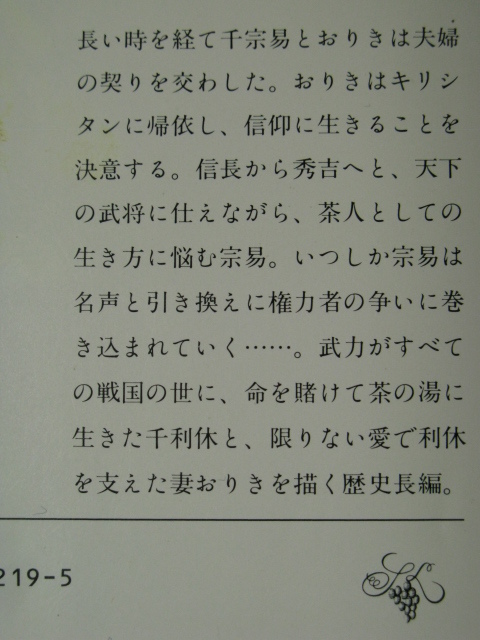 長い時を経て千宗易とおりきは夫婦
の契りを交わした。おりきはキリシ
タンに帰依し、信仰に生きることを
決意する。信長から秀吉へと、天下
の武将に仕えながら、茶人としての
生き方に悩む宗易。いつしか宗易は
名声と引き換えに権力者の争いに巻
き込まれていく……。武力がすべて
の戦国の世に、命を賭けて茶の湯に
生きた千利休と、限りない愛で利休
を支えた妻おりきを描く歴史長編。
219-5